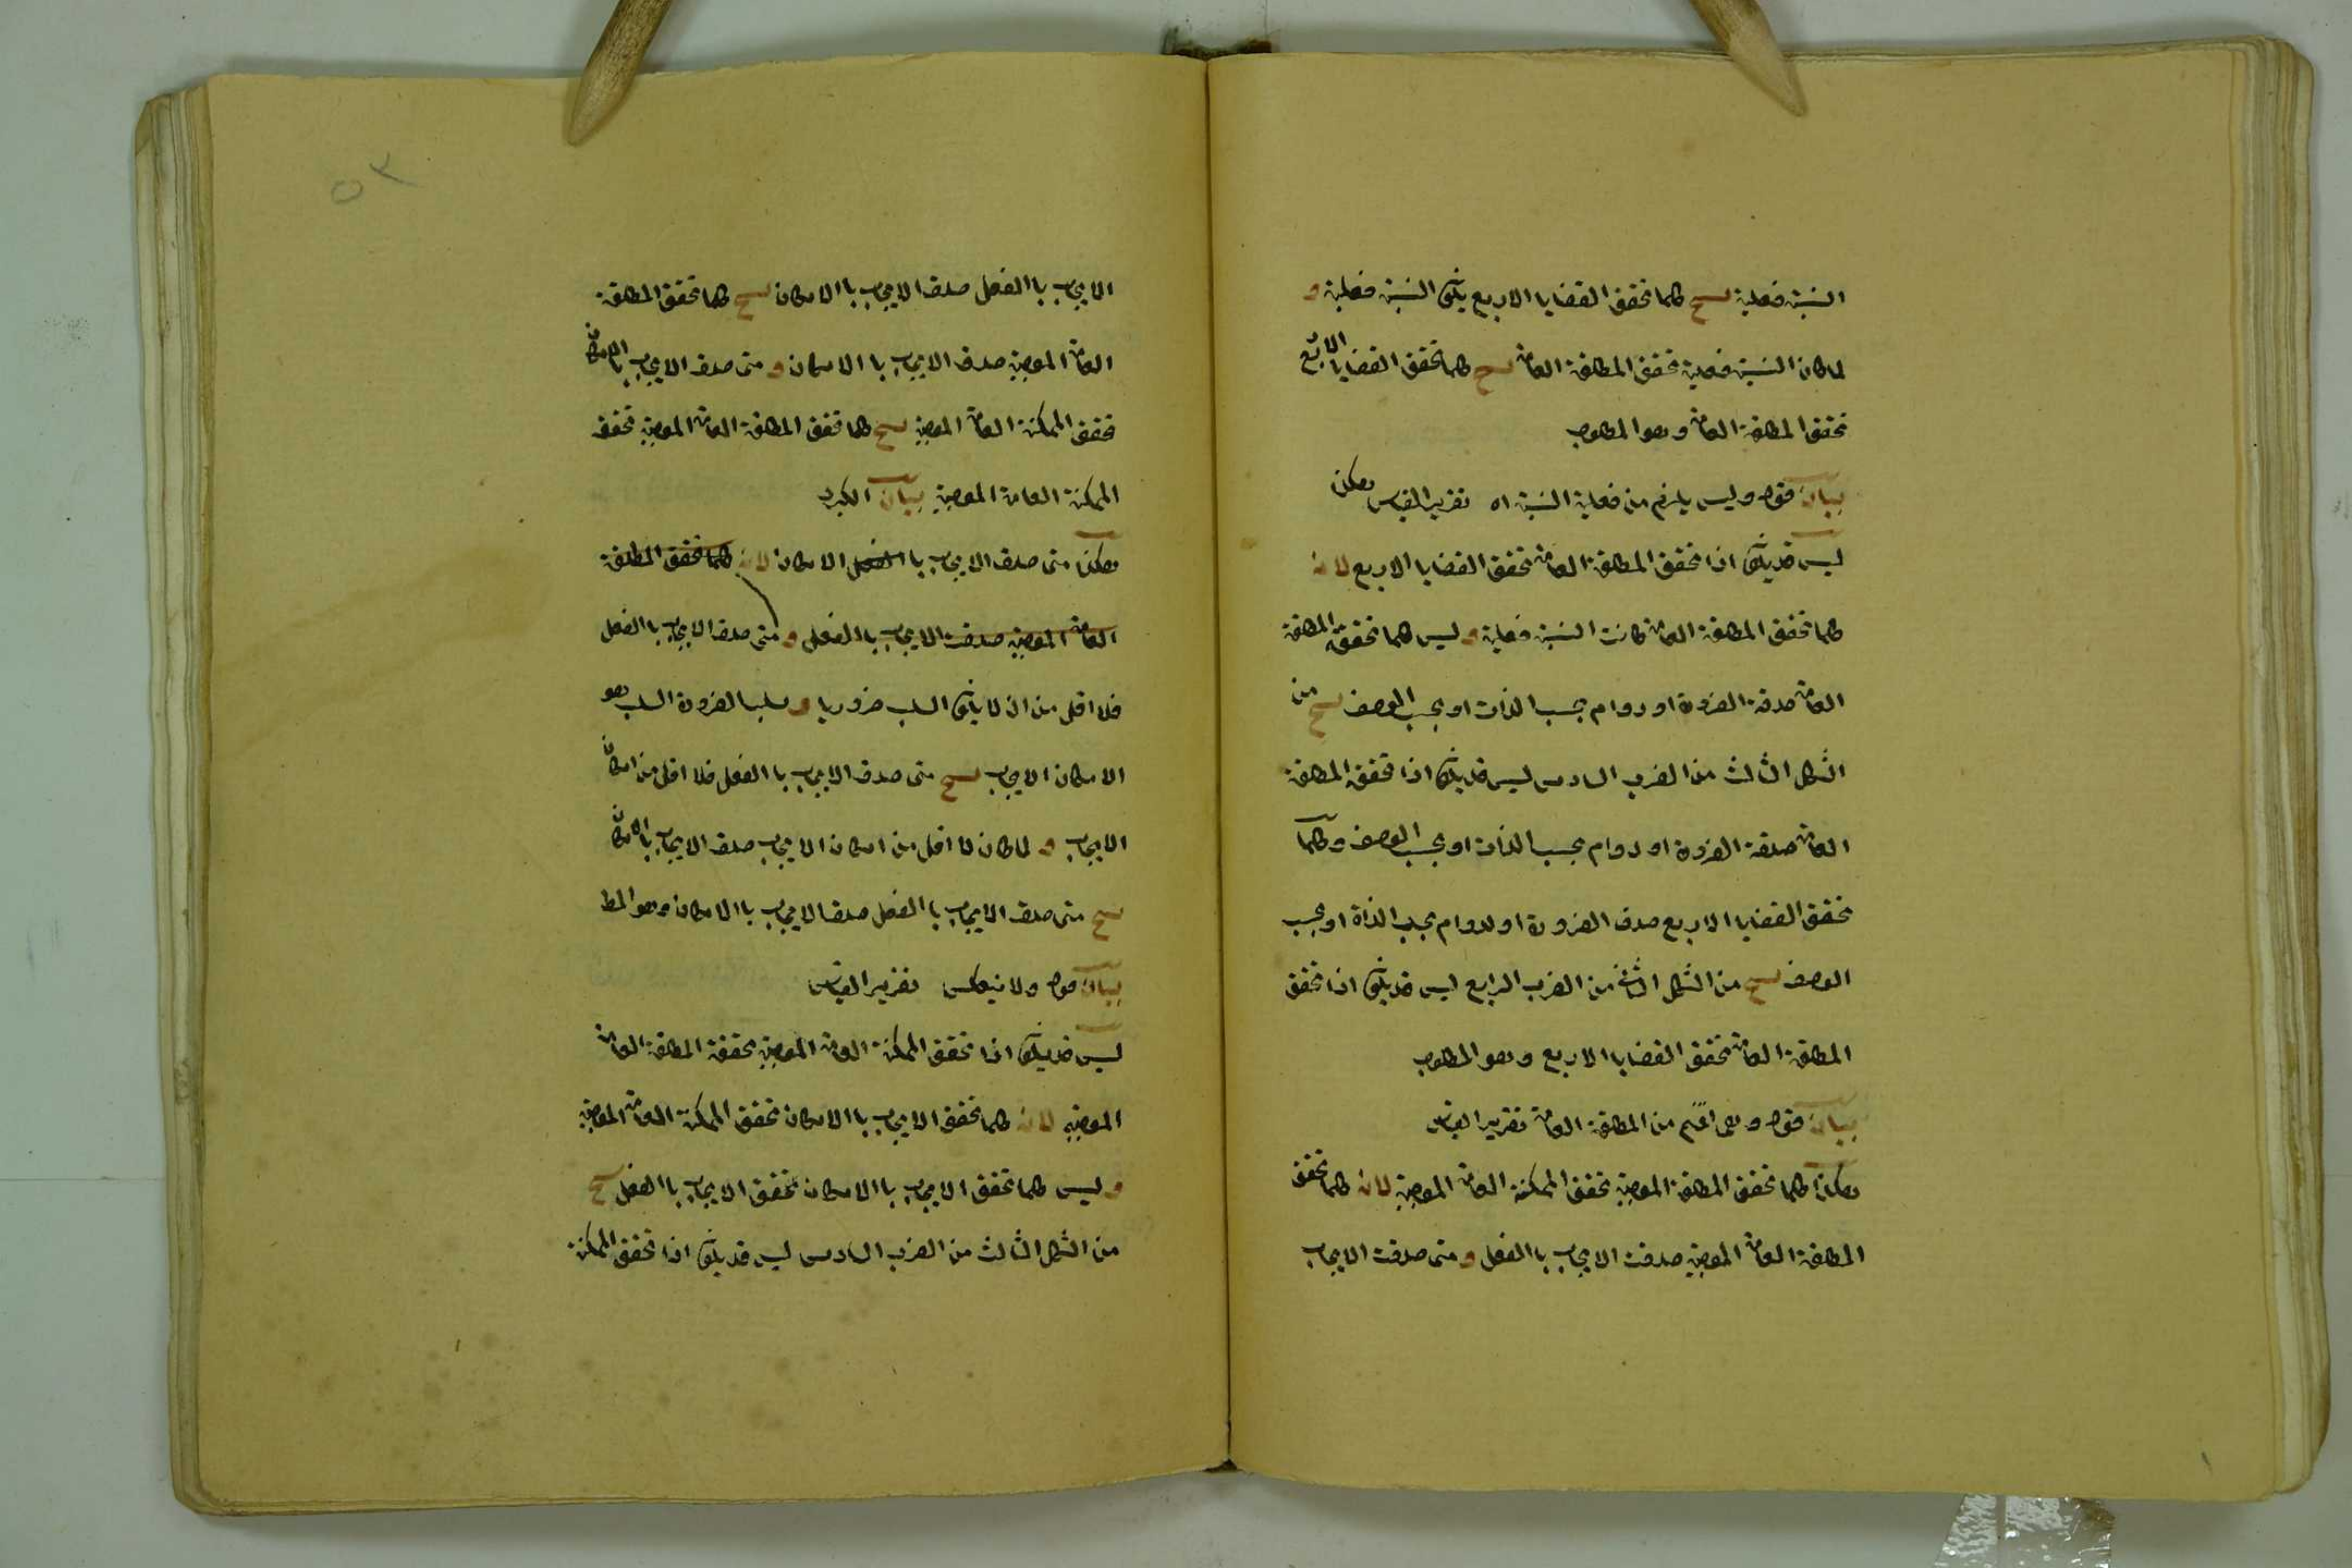 النسبة فعلية نتج كلما تحقق القضايا الاربع يكون النسبة فعلية و
لما كان النسبة فعلية تحقق المطلقة العامة نتج كلما تحقق القضايا الاربع
تحقق المطلقة العامة وهو المطلوب
بيان قوله وليس يلزم من فعلية النسبة اه تقرير القياس هكذا
ليس قد يكون اذا تحقق المطلقة العامة تحقق القضايا الاربع لانه
كلما تحقق المطلقة العامة كانت النسبة فعلية و ليس كلما تحققة المطلقة
العامة صدقة الضرورة او دوام بحسب الذات او بحسب الوصف نتج من
الشكل الثالث من الضرب السادس ليس قد يكون اذا تحققة المطلقة
العامة صدقة الضرورة او دوام بحسب الذات او بحسب الوصف وكلما
تحقق القضايا الاربع صدق الضرورة او لدوام بحسب الذاة او بحسب
الوصف نتج من الشكل الثاني من الضرب الرابع ليس قد يكون اذا تحقق
المطلقة العامة تحقق القضايا الاربع وهو المطلوب
بيان قوله وهي اعم من المطلقة العامة تقرير القياس
هكذا كلما تحقق المطلقة الموجبة تحقق الممكنة العامة الموجبة لانه كلما تحقق
المطلقة العامة الموجبة صدقت الايجاب با الفعل و متى صدقت الايجاب
٥٣
الايجاب با الفعل صدق الايجاب با الامكان نتج كلما تحقق المطلقة
العامة الموجبة صدق الايجاب با الامكان و متى صدق الايجاب با الامكان
تحقق الممكنة العامة الموجبة نتج كلما تحقق المطلقة العامة الموجبة تحقق
الممكنة العامة الموجبة بيان الكبرى
هكذا متى صدق الايجاب با الفعل الامكان لانه كلما تحقق المطلقة
العامة الموجبة صدقت الايجاب با الفعل و متى صدق الايجاب با الفعل
فلا اقل من ان لا يكون السلب ضروريا و سلب الضرورة السلب هو
الامكان الايجاب نتج متى صدق الايجاب با الفعل فلا اقل من امكان
الايجاب و لما كان لا اقل من امكان الايجاب صدق الايجاب با الامكان
نتج متى صدق الايجاب با الفعل صدق الايجاب با الامكان وهو المط
بيان قوله ولا ينعكس تقرير القياس
ليس قد يكون اذا تحقق الممكنة العامة الموجبة تحققة المطلقة العامة
الموجبة لانه كلما تحقق الايجاب با الامكان تحقق الممكنة العامة الموجبة
و ليس كلما تحقق الايجاب با الامكان تحقق الايجاب با الفعل نتج
من الشكل الثالث من الضرب السادس ليس قد يكون اذا تحقق الممكنة